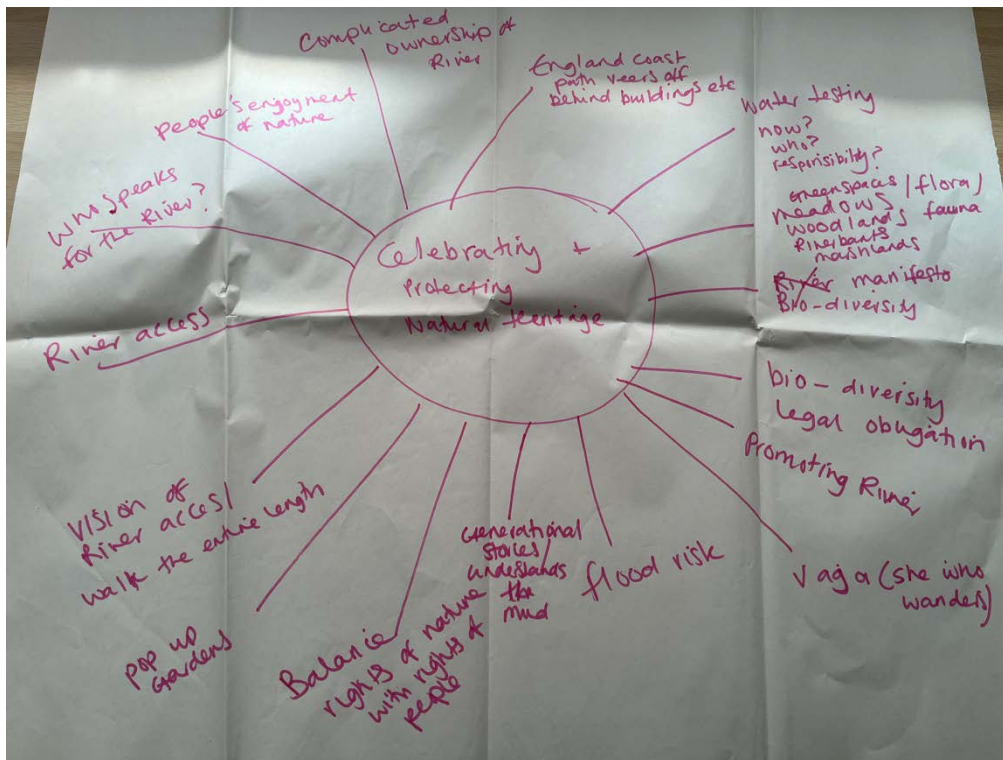 Celebrating +
Protecting
Natural Heritage
Complicated
ownership of
River
England Coast
path veers off
behind buildings etc
Water testing
how?
who?
responsibility?
Greenspaces / flora /
meadows
woodlands fauna
Riverbanks
mashlands
River manifesto
Bio-diversity
bio-diversity
legal obligation
Promoting River
Vaga (she who
wanders)
flood risk
Generational
stories /
understands
the
mud
Balance
rights of nature
with rights of
people
pop up
Gardens
Vision of
River access /
walk the entire length
River access
Who speaks
for the River?
People's enjoyment
of nature